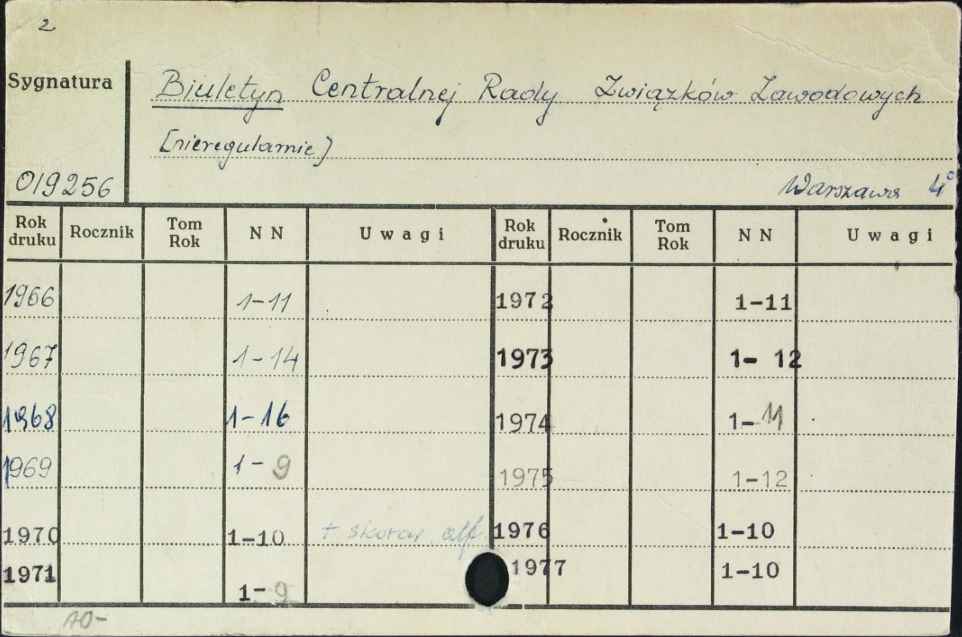 2
Sygnatura
Biuletyn Centralnej Rady Związków Zawodowych
[nieregularnie]
019256
Warszawa 4°
Rok druku Rocznik Tom Rok NN Uwagi Rok druku Rocznik Tom Rok NN Uwagi
1966 1-11 1972 1-11
1967 1-14 1973 1- 12
1968 1-16 1974 1-11
1969 1-9 1975 1-12
1970 1-10 + 1976 1-10
1971 1-9 1977 1-10